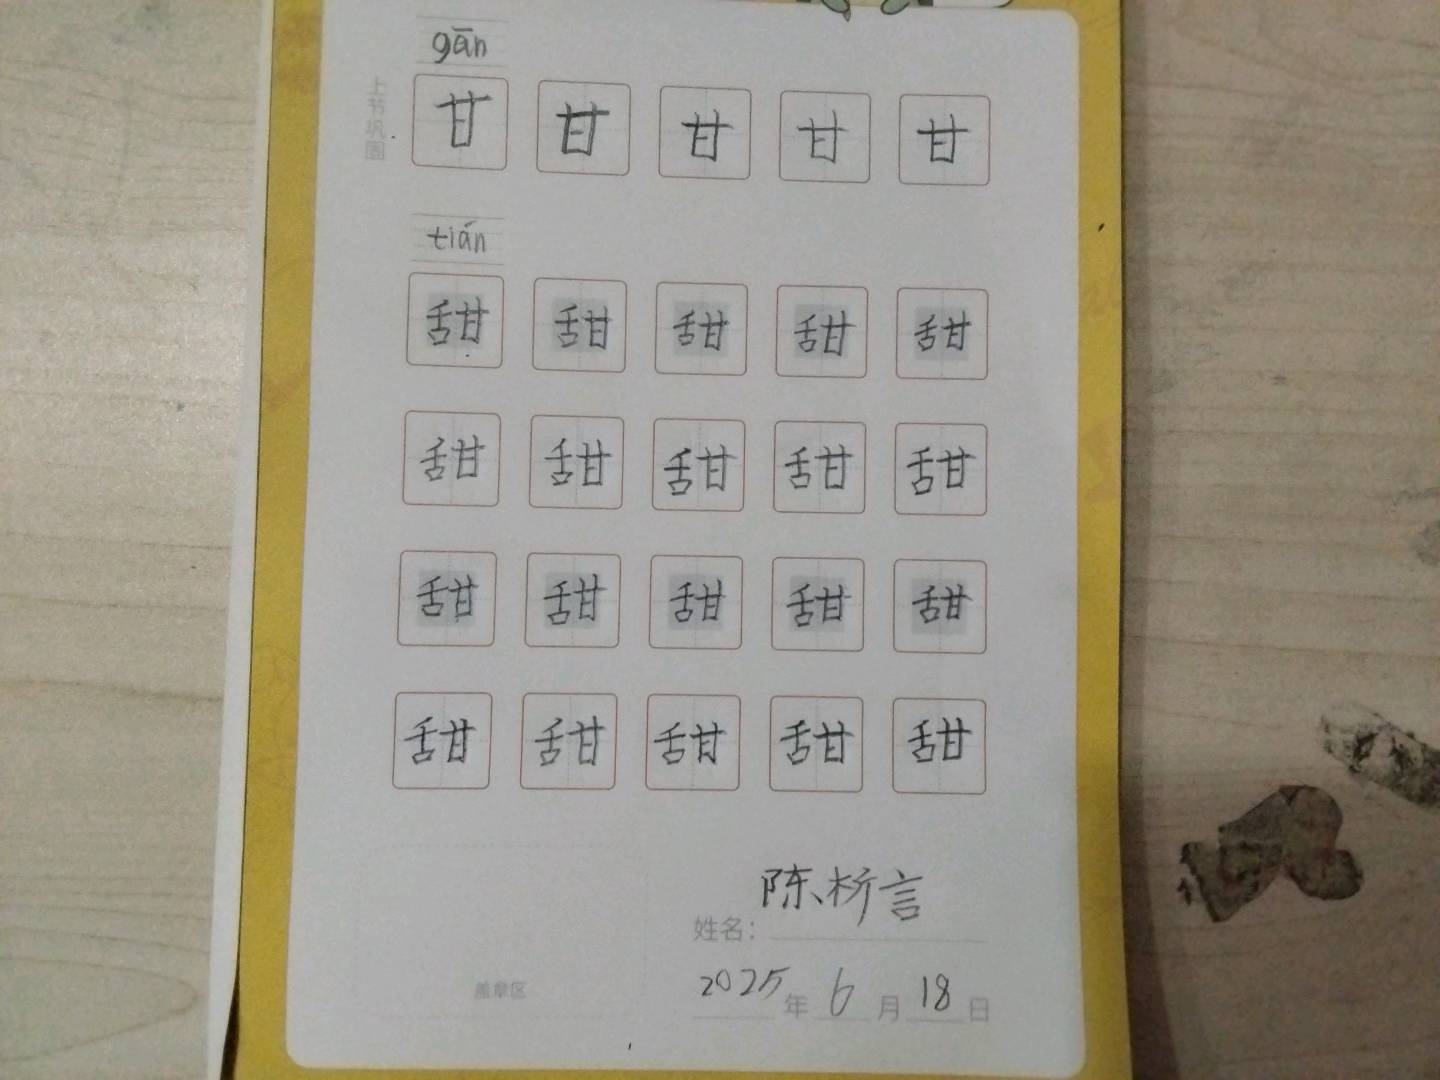 gān
上节巩固
甘 甘 甘 甘 甘
tián
甜 甜 甜 甜 甜
甜 甜 甜 甜 甜
甜 甜 甜 甜 甜
甜 甜 甜 甜 甜
姓名：陈析言
盖章区
2025年6月18日